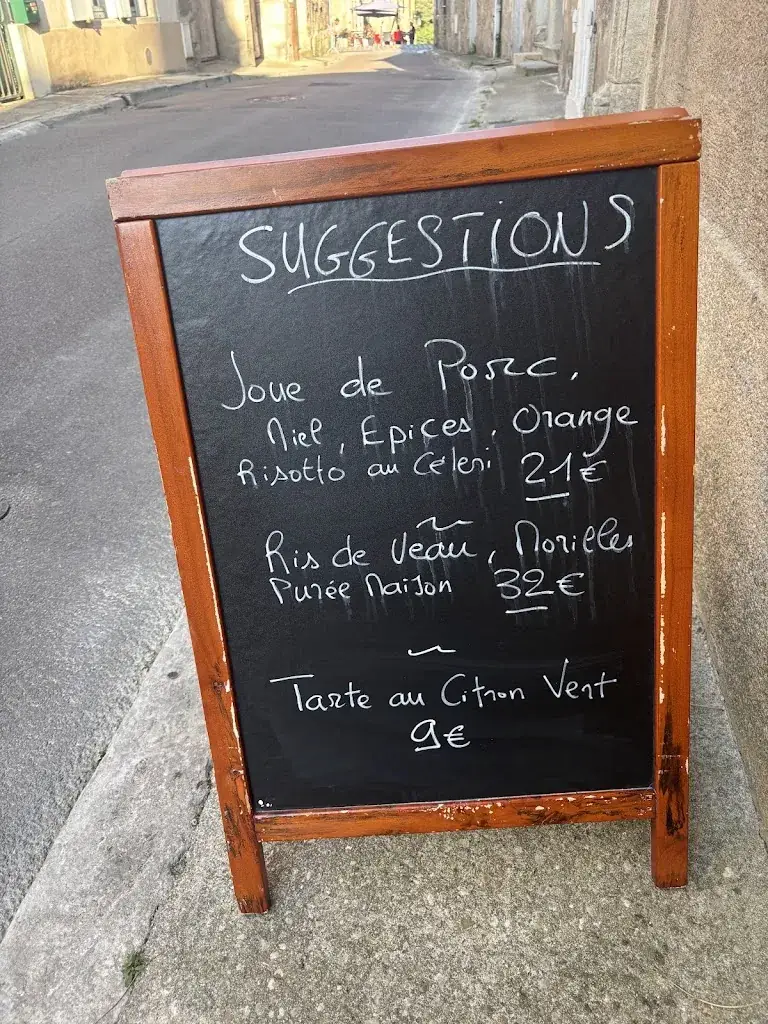 SUGGESTIONS
Joue de Porc,
Miel, Epices, Orange
Risotto au Céleri 21€
~
Ris de Veau, Morilles
Purée Maison 32€
~
Tarte au Citron Vert
9€